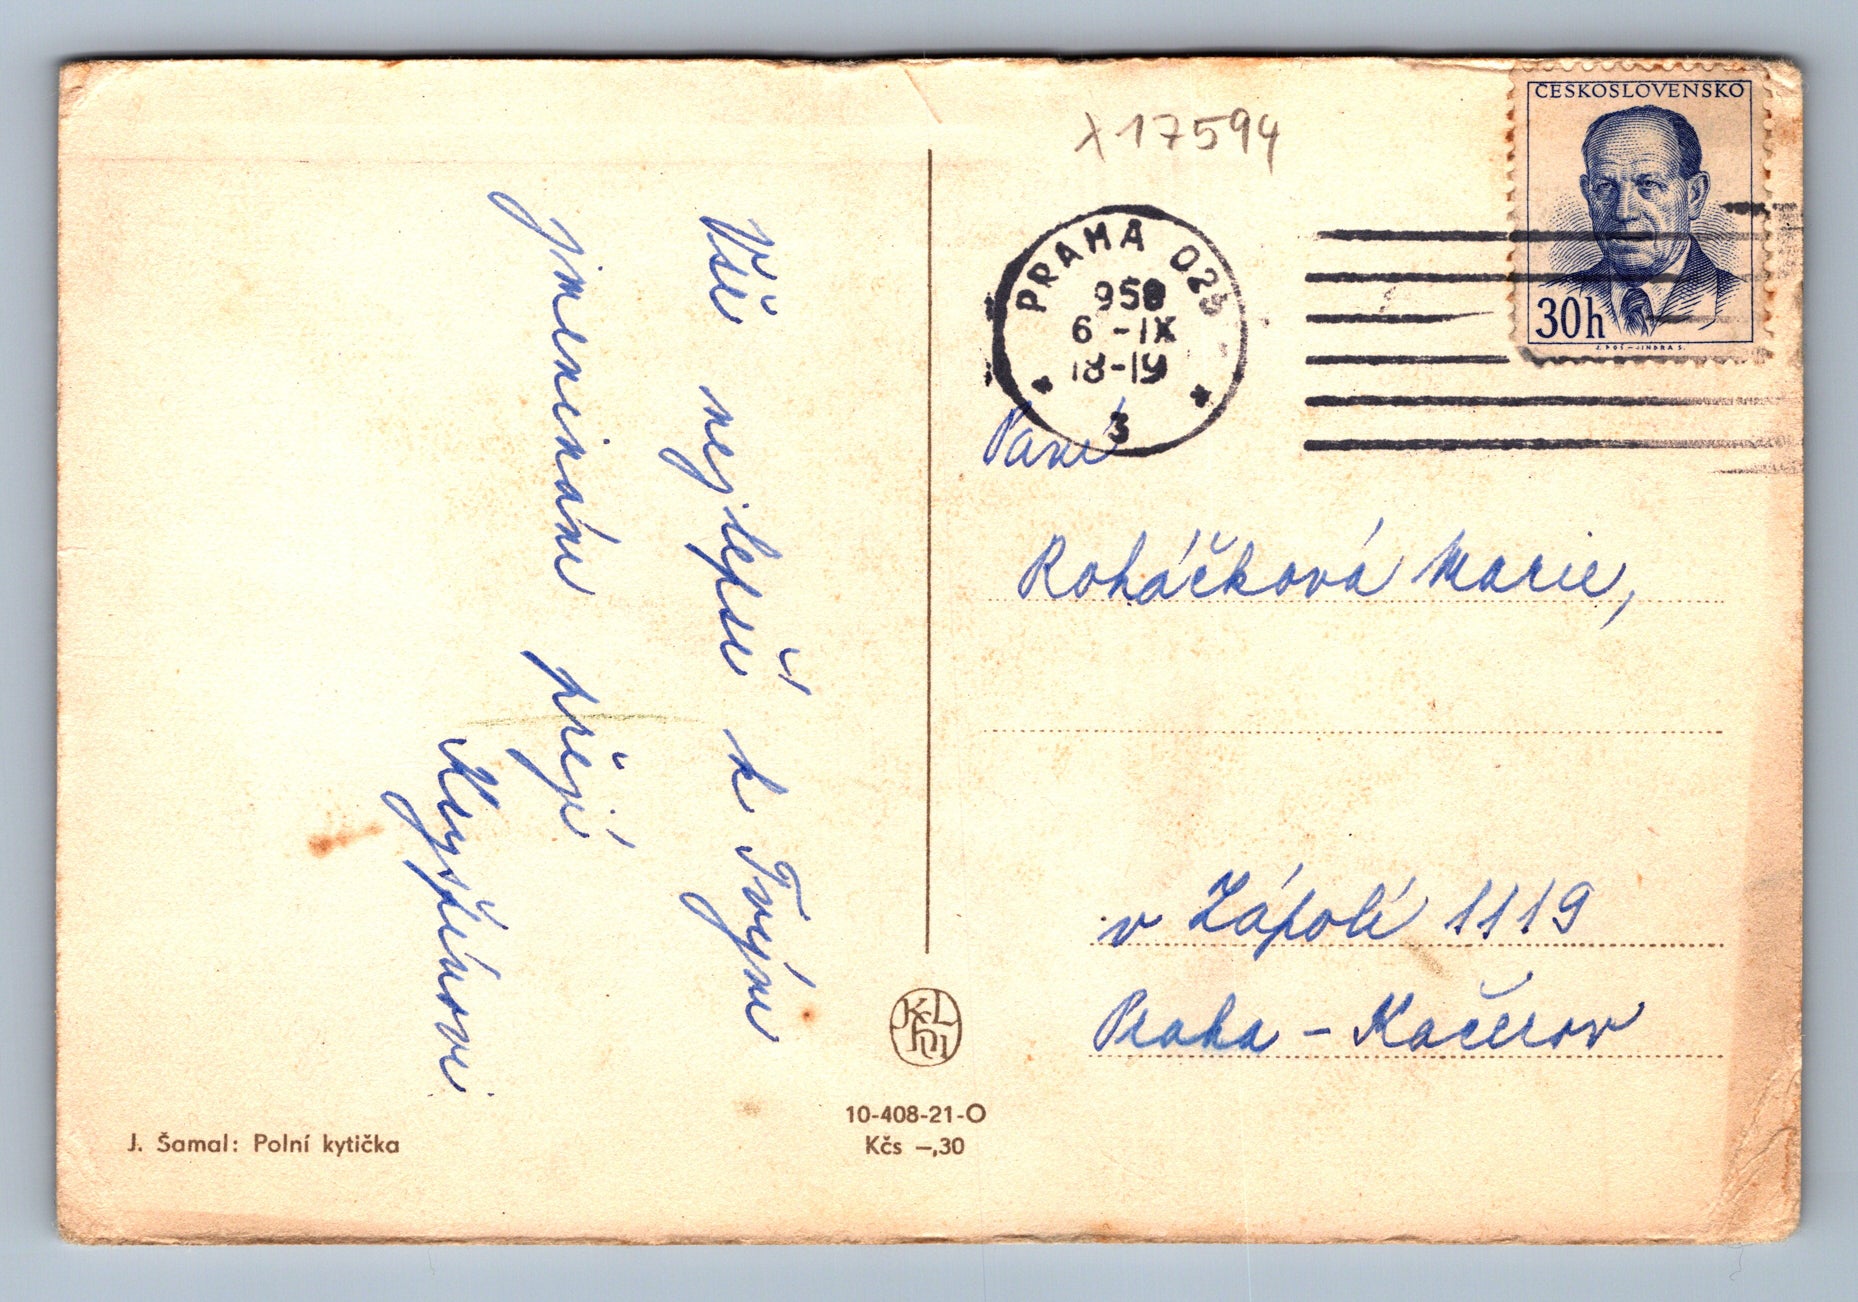 Vše nejlepší k Tvým
jmeninám přejí
x17594
ČESKOSLOVENSKO
30h
PRAHA 025
958
6 -IX
18-19
3
Paní
Roháčková Marie,
v Zápolí 1119
Praha - Kačerov
10-408-21-O
Kčs –,30
J. Šamal: Polní kytička